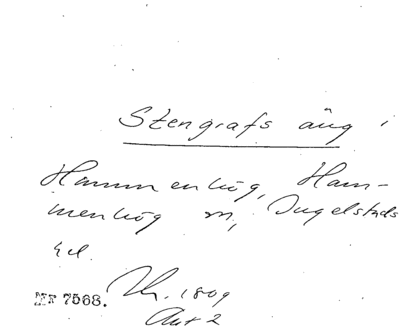 Stengrafs äng
Hammenhög, Ham-
menhög sn, Ingelstads
hd.
Nr 7568. 1809
Akt 2